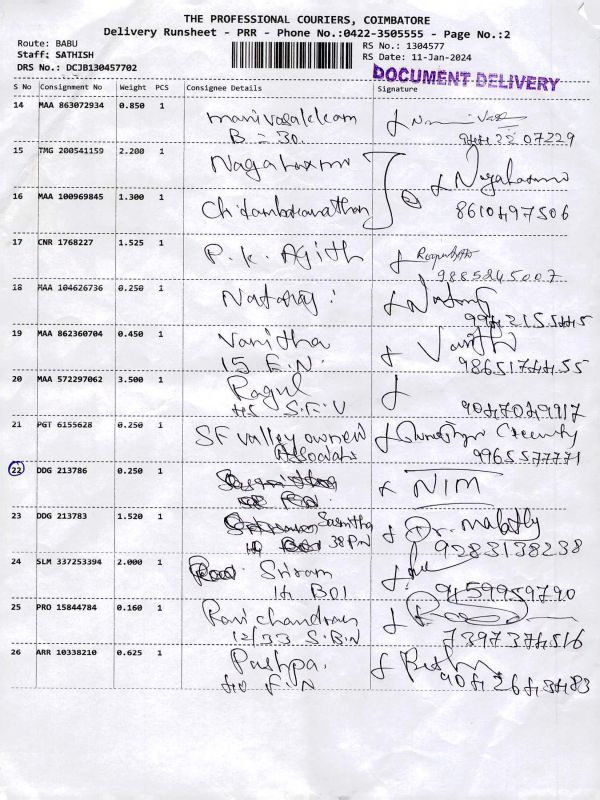 THE PROFESSIONAL COURIERS, COIMBATORE
Delivery Runsheet - PRR - Phone No.:0422-3505555 - Page No.:2
Route: BABU
Staff: SATHISH
DRS No.: DCJB130457702
RS No.: 1304577
RS Date: 11-Jan-2024
DOCUMENT DELIVERY
S No Consignment No Weight PCS Consignee Details Signature
14 MAA 863072934 0.850 1
B - 30.
07229
15 TMG 200541159 2.200 1 Nagalaxmi Nagalaxmi
16 MAA 100969845 1.300 1 Chidambaranathan 8610497506
17 CNR 1768227 1.525 1 P.K. Agith
9885245007
18 MAA 104626736 0.250 1 Nataraj
19 MAA 862360704 0.450 1 Vanitha
15 E.N. 9865174455
20 MAA 572297062 3.500 1 Ragul
45 S.F.V 9047049917
21 PGT 6155628 0.250 1 SF Valley owners Security
Associate 9965577771
22 DDG 213786 0.250 1 NIM
23 DDG 213783 1.520 1 Sasmitha Dr.
38 PN 9283138238
24 SLM 337253394 2.000 1 Sriram
14 B01 9159959790
25 PRO 15844784 0.160 1 Ravichandran
12/33 S.B.N 7397374516
26 ARR 10338210 0.625 1 Pushpa.
40 F.N 9042643483